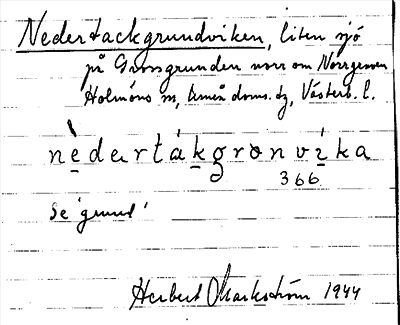 Nedertackgrundviken, liten sjö
på Grossgrunden norr om Norrgeven
Holmöns sn, Umeå doms. tg, Västerb. l.
nedertákgronvika
366
Se 'grund'
Herbert Markström 1944